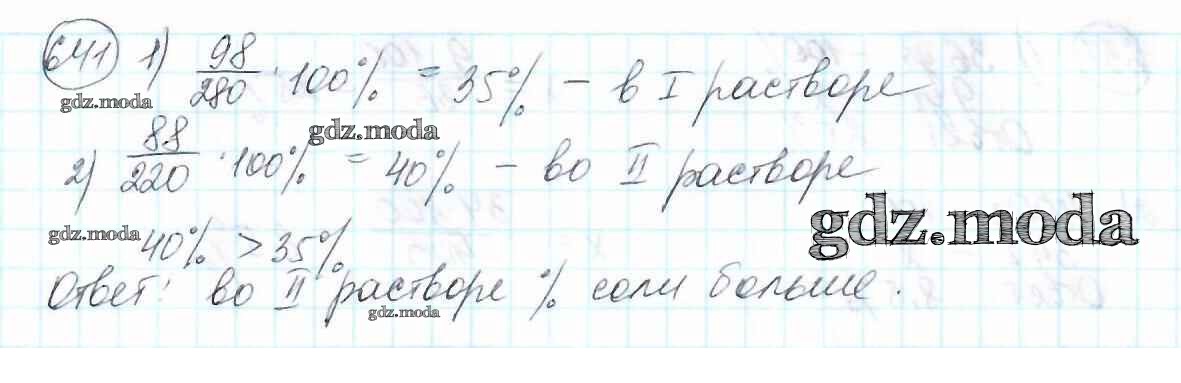 641 1) 98/280 · 100% = 35% – в I растворе
gdz.moda
gdz.moda
2) 88/220 · 100% = 40% – во II растворе
gdz.moda
gdz.moda
40% > 35%
Ответ: во II растворе % соли больше.
gdz.moda